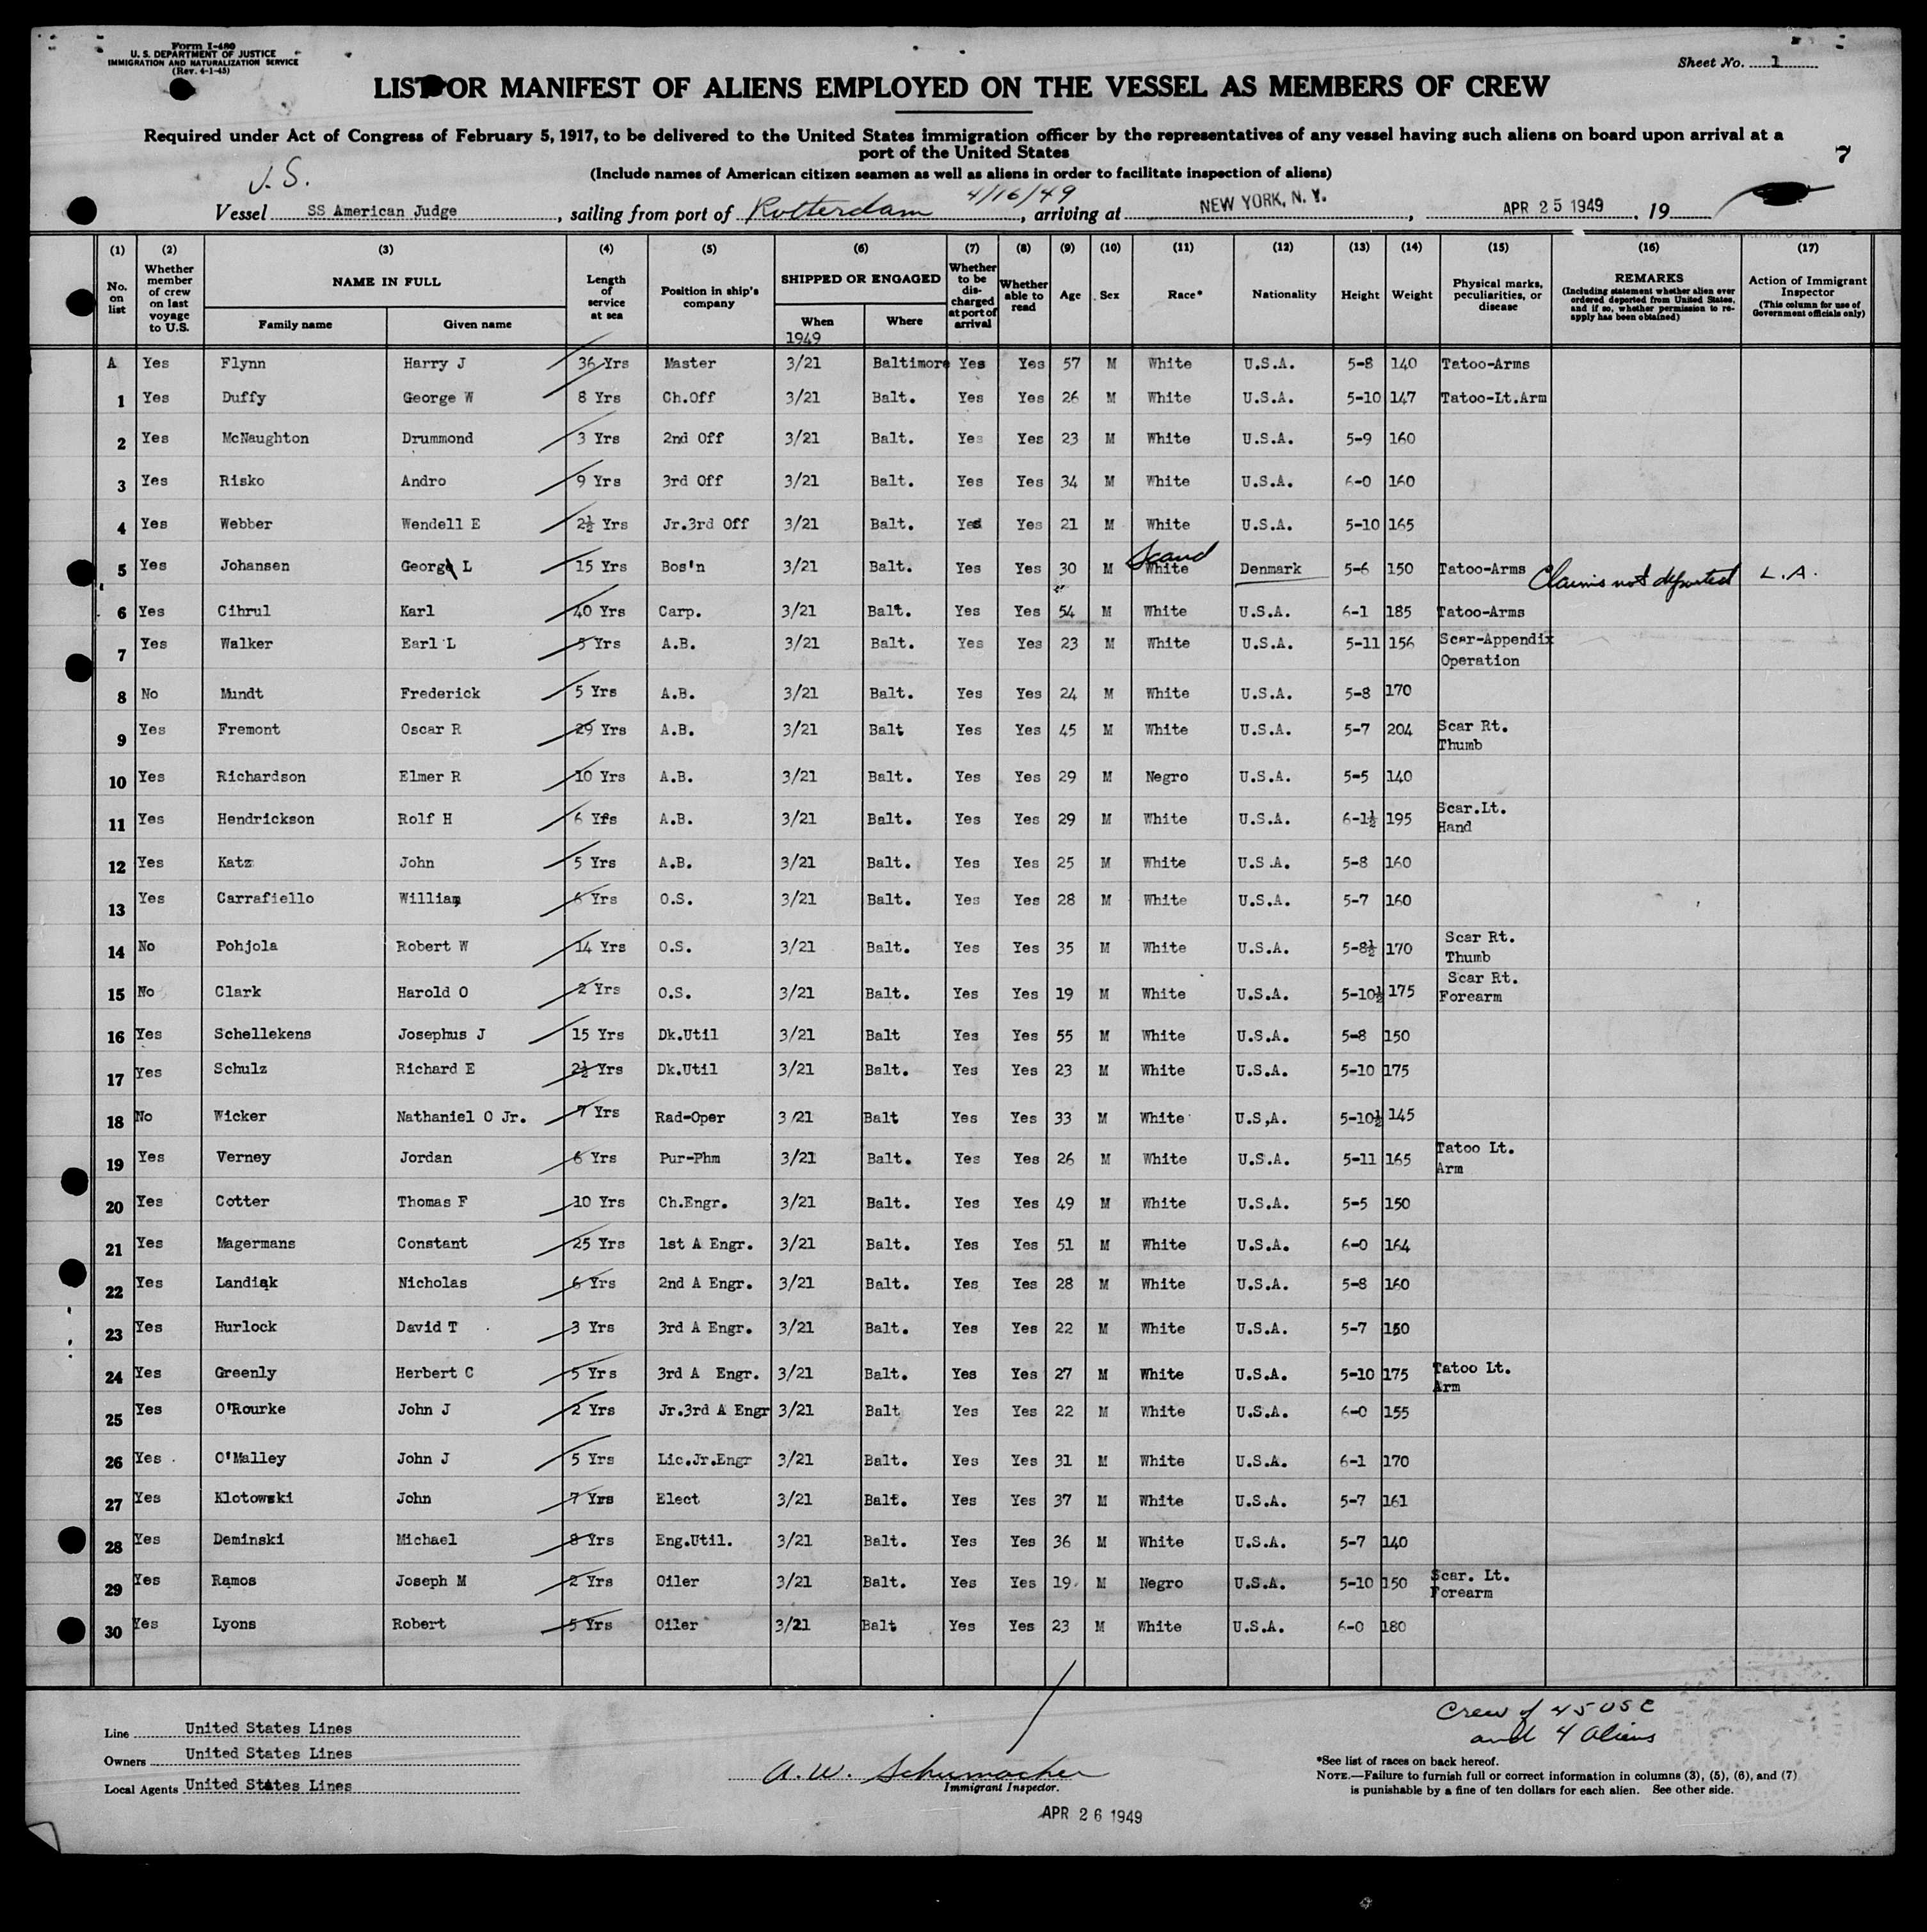 Form I-480
U. S. DEPARTMENT OF JUSTICE
IMMIGRATION AND NATURALIZATION SERVICE
(Rev. 4-1-45)
Sheet No. 1
LIST OR MANIFEST OF ALIENS EMPLOYED ON THE VESSEL AS MEMBERS OF CREW
Required under Act of Congress of February 5, 1917, to be delivered to the United States immigration officer by the representatives of any vessel having such aliens on board upon arrival at a
port of the United States
(Include names of American citizen seamen as well as aliens in order to facilitate inspection of aliens)
7
U.S.
Vessel SS American Judge, sailing from port of Rotterdam 4/16/49, arriving at NEW YORK, N. Y., APR 25 1949, 19
(1) (2) (3) (4) (5) (6) (7) (8) (9) (10) (11) (12) (13) (14) (15) (16) (17)
No. on list
Whether member of crew on last voyage to U.S.
NAME IN FULL
Family name
Given name
Length of service at sea
Position in ship's company
SHIPPED OR ENGAGED
When
1949
Where
Whether to be discharged at port of arrival
Whether able to read
Age
Sex
Race*
Nationality
Height
Weight
Physical marks, peculiarities, or disease
REMARKS
(Including statement whether alien ever ordered deported from United States, and if so, whether permission to reapply has been obtained)
Action of Immigrant Inspector
(This column for use of Government officials only)
A Yes Flynn Harry J 36 Yrs Master 3/21 Baltimore Yes Yes 57 M White U.S.A. 5-8 140 Tatoo-Arms
1 Yes Duffy George W 8 Yrs Ch.Off 3/21 Balt. Yes Yes 26 M White U.S.A. 5-10 147 Tatoo-Lt.Arm
2 Yes McNaughton Drummond 3 Yrs 2nd Off 3/21 Balt. Yes Yes 23 M White U.S.A. 5-9 160
3 Yes Risko Andro 9 Yrs 3rd Off 3/21 Balt. Yes Yes 34 M White U.S.A. 6-0 160
4 Yes Webber Wendell E 2½ Yrs Jr.3rd Off 3/21 Balt. Yes Yes 21 M White U.S.A. 5-10 165
5 Yes Johansen Georg L 15 Yrs Bos'n 3/21 Balt. Yes Yes 30 M Scand White Denmark 5-6 150 Tatoo-Arms Claims not deported L.A.
6 Yes Cihrul Karl 40 Yrs Carp. 3/21 Balt. Yes Yes 54 M White U.S.A. 6-1 185 Tatoo-Arms
7 Yes Walker Earl L 5 Yrs A.B. 3/21 Balt. Yes Yes 23 M White U.S.A. 5-11 156 Scar-Appendix Operation
8 No Mundt Frederick 5 Yrs A.B. 3/21 Balt. Yes Yes 24 M White U.S.A. 5-8 170
9 Yes Fremont Oscar R 29 Yrs A.B. 3/21 Balt Yes Yes 45 M White U.S.A. 5-7 204 Scar Rt. Thumb
10 Yes Richardson Elmer R 10 Yrs A.B. 3/21 Balt. Yes Yes 29 M Negro U.S.A. 5-5 140
11 Yes Hendrickson Rolf H 6 Yrs A.B. 3/21 Balt. Yes Yes 29 M White U.S.A. 6-1½ 195 Scar.Lt. Hand
12 Yes Katz John 5 Yrs A.B. 3/21 Balt. Yes Yes 25 M White U.S.A. 5-8 160
13 Yes Carrafiello William 6 Yrs O.S. 3/21 Balt. Yes Yes 28 M White U.S.A. 5-7 160
14 No Pohjola Robert W 14 Yrs O.S. 3/21 Balt. Yes Yes 35 M White U.S.A. 5-8½ 170 Scar Rt. Thumb
15 No Clark Harold O 2 Yrs O.S. 3/21 Balt. Yes Yes 19 M White U.S.A. 5-10½ 175 Scar Rt. Forearm
16 Yes Schellekens Josephus J 15 Yrs Dk.Util 3/21 Balt Yes Yes 55 M White U.S.A. 5-8 150
17 Yes Schulz Richard E 2½ Yrs Dk.Util 3/21 Balt. Yes Yes 23 M White U.S.A. 5-10 175
18 No Wicker Nathaniel O Jr. 7 Yrs Rad-Oper 3/21 Balt Yes Yes 33 M White U.S,A. 5-10½ 145
19 Yes Verney Jordan 6 Yrs Pur-Phm 3/21 Balt. Yes Yes 26 M White U.S.A. 5-11 165 Tatoo Lt. Arm
20 Yes Cotter Thomas F 10 Yrs Ch.Engr. 3/21 Balt. Yes Yes 49 M White U.S.A. 5-5 150
21 Yes Magermans Constant 25 Yrs 1st A Engr. 3/21 Balt. Yes Yes 51 M White U.S.A. 6-0 164
22 Yes Landiak Nicholas 6 Yrs 2nd A Engr. 3/21 Balt. Yes Yes 28 M White U.S.A. 5-8 160
23 Yes Hurlock David T 3 Yrs 3rd A Engr. 3/21 Balt. Yes Yes 22 M White U.S.A. 5-7 150
24 Yes Greenly Herbert C 5 Yrs 3rd A Engr. 3/21 Balt. Yes Yes 27 M White U.S.A. 5-10 175 Tatoo Lt. Arm
25 Yes O'Rourke John J 2 Yrs Jr.3rd A Engr 3/21 Balt Yes Yes 22 M White U.S.A. 6-0 155
26 Yes O'Malley John J 5 Yrs Lic.Jr.Engr 3/21 Balt. Yes Yes 31 M White U.S.A. 6-1 170
27 Yes Klotowski John 7 Yrs Elect 3/21 Balt. Yes Yes 37 M White U.S.A. 5-7 161
28 Yes Deminski Michael 8 Yrs Eng.Util. 3/21 Balt. Yes Yes 36 M White U.S.A. 5-7 140
29 Yes Ramos Joseph M 2 Yrs Oiler 3/21 Balt. Yes Yes 19 M Negro U.S.A. 5-10 150 Scar. Lt. Forearm
30 Yes Lyons Robert 5 Yrs Oiler 3/21 Balt Yes Yes 23 M White U.S.A. 6-0 180
Crew of 45 USC
and 4 Aliens
Line United States Lines
Owners United States Lines
Local Agents United States Lines
A. W. Schumacher
Immigrant Inspector.
APR 26 1949
*See list of races on back hereof.
NOTE.—Failure to furnish full or correct information in columns (3), (5), (6), and (7)
is punishable by a fine of ten dollars for each alien. See other side.